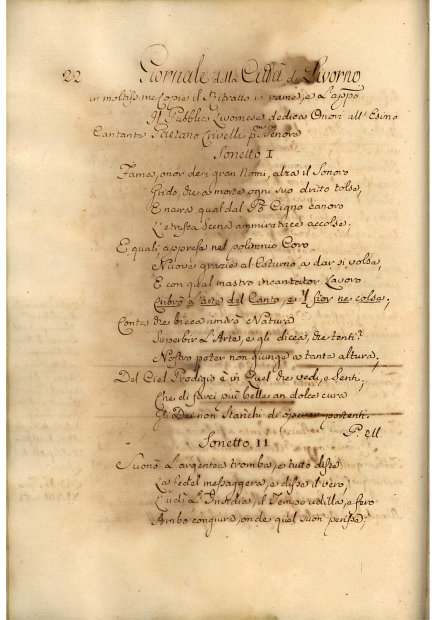 22 Giornale della Città di Livorno
in moltiss.me Copie il Ritratto in rame, e L'appo.
Il Pubblico Livornese dedica Onori all'Esimio
Cantante Gaetano Crivelli p.mo Tenore
Sonetto I
Fama, onor dei gran Nomi, alza il Sonoro
Grido, che a morte ogni suo dritto tolse,
E narra qual dal Pò Cigno canoro
L'Etrusca Scena ammiratrice accolse;
E quali apprese nel polinnio Coro
Nuove grazie al Coturno a dar si volse,
E con qual mastro incantator Lavoro
L'arte del Canto, e il fior ne colse.
Conta che bieca mirò Natura
Superbir L'Arte, e gli dicea, che tenti?
Nostro poter non giunge a tanta altura;
Del Ciel Prodigio è in Quel che vedi, e Senti,
Che di farci più belle an dolce cura
Gli Dei non Stanchi di oprar portenti.
P. M
Sonetto II
Suonò L'argentea tromba, e tutto disse
La fedel messaggera, e disse il vero;
L'udì L'Invidia, il Tempo udilla, e fero
Ambo congiura, onde quel suon perisse;